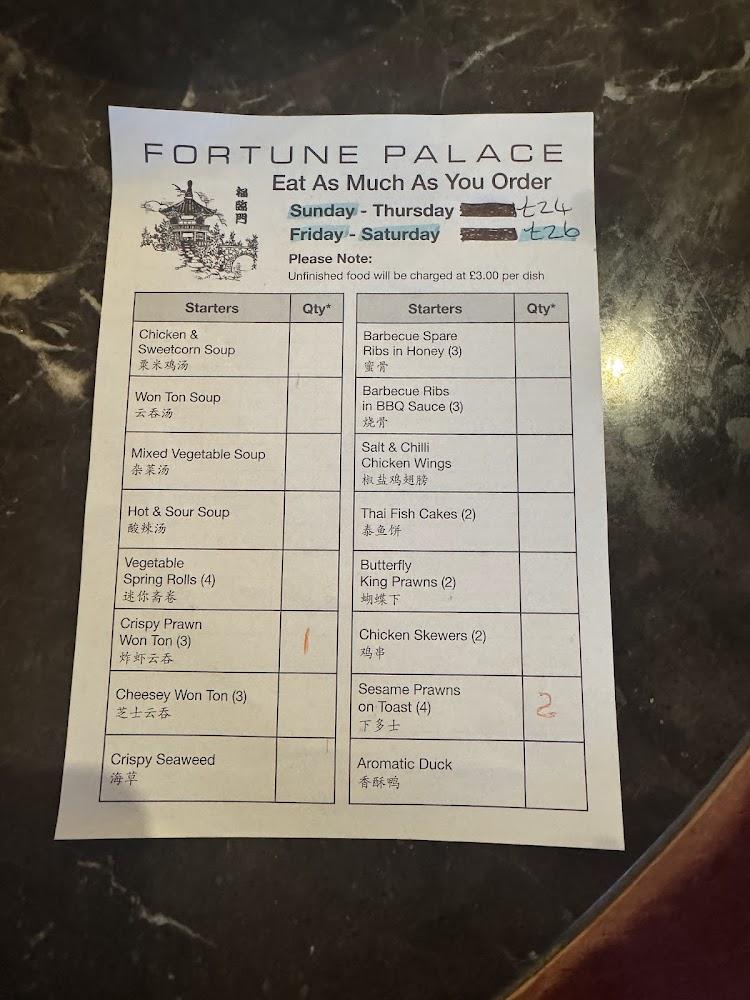 FORTUNE PALACE
福臨門
Eat As Much As You Order
Sunday - Thursday £24
Friday - Saturday £26
Please Note:
Unfinished food will be charged at £3.00 per dish
Starters Qty*
Chicken &
Sweetcorn Soup
粟米鸡汤
Won Ton Soup
云吞汤
Mixed Vegetable Soup
杂菜汤
Hot & Sour Soup
酸辣汤
Vegetable
Spring Rolls (4)
迷你斋卷
Crispy Prawn
Won Ton (3) 1
炸虾云吞
Cheesey Won Ton (3)
芝士云吞
Crispy Seaweed
海草
Starters Qty*
Barbecue Spare
Ribs in Honey (3)
蜜骨
Barbecue Ribs
in BBQ Sauce (3)
烧骨
Salt & Chilli
Chicken Wings
椒盐鸡翅膀
Thai Fish Cakes (2)
泰鱼饼
Butterfly
King Prawns (2)
蝴蝶下
Chicken Skewers (2)
鸡串
Sesame Prawns
on Toast (4) 2
下多士
Aromatic Duck
香酥鸭